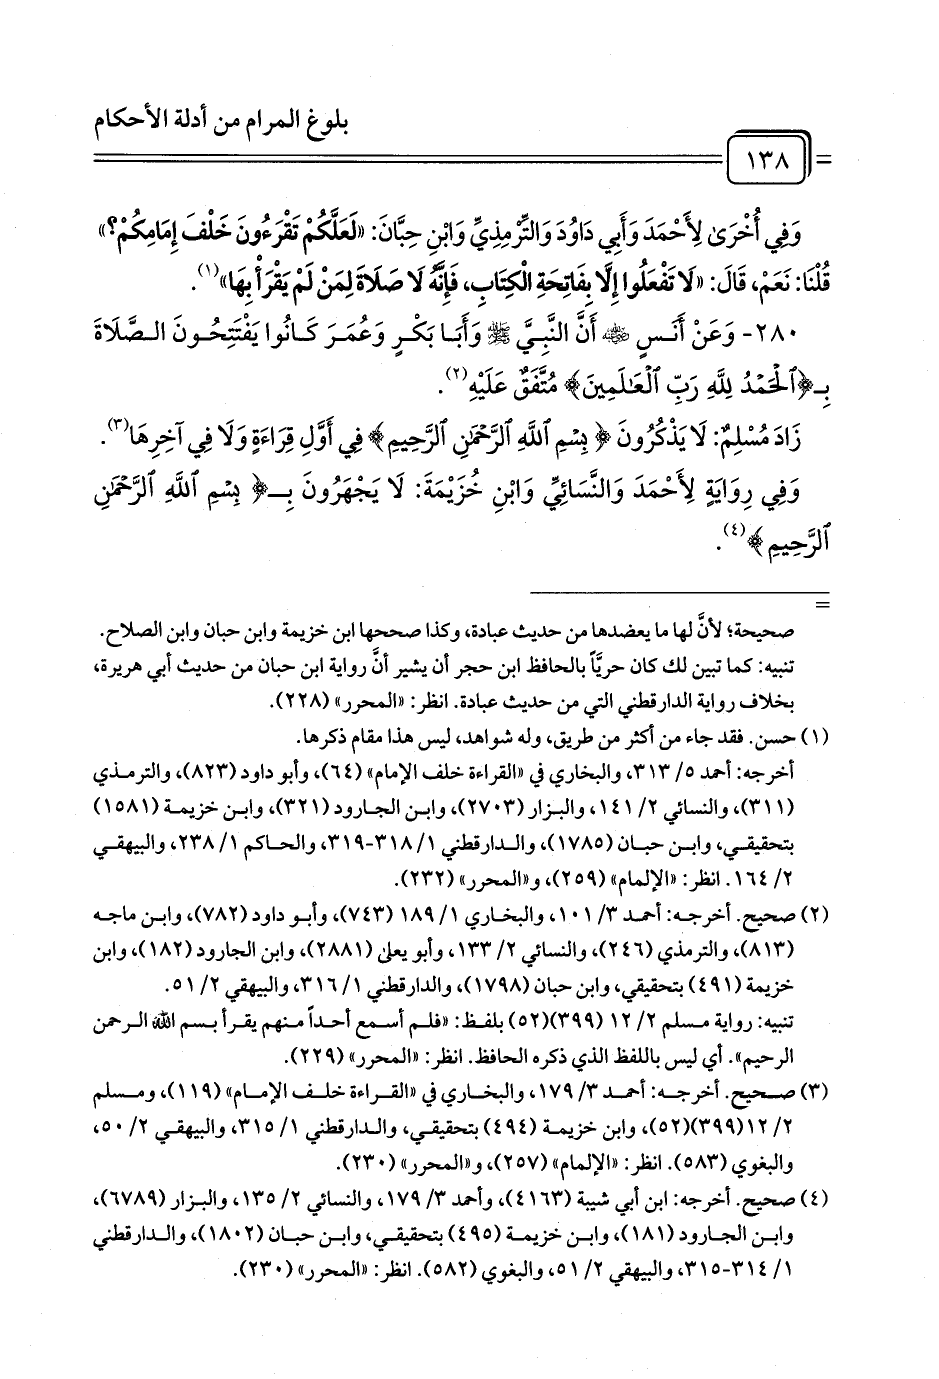 بلوغ المرام من أدلة الأحكام
١٣٨
وَفِي أُخْرَىٰ لِأَحْمَدَ وَأَبِي دَاوُدَ وَالتِّرْمِذِيِّ وَابْنِ حِبَّانَ: «لَعَلَّكُمْ تَقْرَءُونَ خَلْفَ إِمَامِكُمْ؟»
قُلْنَا: نَعَمْ، قَالَ: «لَا تَفْعَلُوا إِلَّا بِفَاتِحَةِ الْكِتَابِ، فَإِنَّهُ لَا صَلَاةَ لِمَنْ لَمْ يَقْرَأْ بِهَا»(١).
٢٨٠- وَعَنْ أَنَسٍ ﷺ أَنَّ النَّبِيَّ ﷺ وَأَبَا بَكْرٍ وَعُمَرَ كَانُوا يَفْتَتِحُونَ الصَّلَاةَ
بِـ﴿ٱلْحَمْدُ لِلَّهِ رَبِّ ٱلْعَـٰلَمِينَ﴾ مُتَّفَقٌ عَلَيْهِ(٢).
زَادَ مُسْلِمٌ: لَا يَذْكُرُونَ ﴿بِسْمِ ٱللَّهِ ٱلرَّحْمَـٰنِ ٱلرَّحِيمِ﴾ فِي أَوَّلِ قِرَاءَةٍ وَلَا فِي آخِرِهَا(٣).
وَفِي رِوَايَةٍ لِأَحْمَدَ وَالنَّسَائِيِّ وَابْنِ خُزَيْمَةَ: لَا يَجْهَرُونَ بِـ﴿بِسْمِ ٱللَّهِ ٱلرَّحْمَـٰنِ
ٱلرَّحِيمِ﴾(٤).
=
صحيحة؛ لأنَّ لها ما يعضدها من حديث عبادة، وكذا صححها ابن خزيمة وابن حبان وابن الصلاح.
تنبيه: كما تبين لك كان حريَّاً بالحافظ ابن حجر أن يشير أنَّ رواية ابن حبان من حديث أبي هريرة،
بخلاف رواية الدارقطني التي من حديث عبادة. انظر: «المحرر» (٢٢٨).
(١) حسن. فقد جاء من أكثر من طريق، وله شواهد، ليس هذا مقام ذكرها.
أخرجه: أحمد ٥/ ٣١٣، والبخاري في «القراءة خلف الإمام» (٦٤)، وأبو داود (٨٢٣)، والترمذي
(٣١١)، والنسائي ٢/ ١٤١، والبزار (٢٧٠٣)، وابن الجارود (٣٢١)، وابن خزيمة (١٥٨١)
بتحقيقي، وابن حبان (١٧٨٥)، والدارقطني ١/ ٣١٨-٣١٩، والحاكم ١/ ٢٣٨، والبيهقي
٢/ ١٦٤. انظر: «الإلمام» (٢٥٩)، و«المحرر» (٢٣٢).
(٢) صحيح. أخرجه: أحمد ٣/ ١٠١، والبخاري ١/ ١٨٩ (٧٤٣)، وأبو داود (٧٨٢)، وابن ماجه
(٨١٣)، والترمذي (٢٤٦)، والنسائي ٢/ ١٣٣، وأبو يعلى (٢٨٨١)، وابن الجارود (١٨٢)، وابن
خزيمة (٤٩١) بتحقيقي، وابن حبان (١٧٩٨)، والدارقطني ١/ ٣١٦، والبيهقي ٢/ ٥١.
تنبيه: رواية مسلم ٢/ ١٢ (٣٩٩)(٥٢) بلفظ: «فلم أسمع أحداً منهم يقرأ بسم الله الرحمن
الرحيم». أي ليس باللفظ الذي ذكره الحافظ. انظر: «المحرر» (٢٢٩).
(٣) صحيح. أخرجه: أحمد ٣/ ١٧٩، والبخاري في «القراءة خلف الإمام» (١١٩)، ومسلم
٢/ ١٢(٣٩٩)(٥٢)، وابن خزيمة (٤٩٤) بتحقيقي، والدارقطني ١/ ٣١٥، والبيهقي ٢/ ٥٠،
والبغوي (٥٨٣). انظر: «الإلمام» (٢٥٧)، و«المحرر» (٢٣٠).
(٤) صحيح. أخرجه: ابن أبي شيبة (٤١٦٣)، وأحمد ٣/ ١٧٩، والنسائي ٢/ ١٣٥، والبزار (٦٧٨٩)،
وابن الجارود (١٨١)، وابن خزيمة (٤٩٥) بتحقيقي، وابن حبان (١٨٠٢)، والدارقطني
١/ ٣١٤-٣١٥، والبيهقي ٢/ ٥١، والبغوي (٥٨٢). انظر: «المحرر» (٢٣٠).